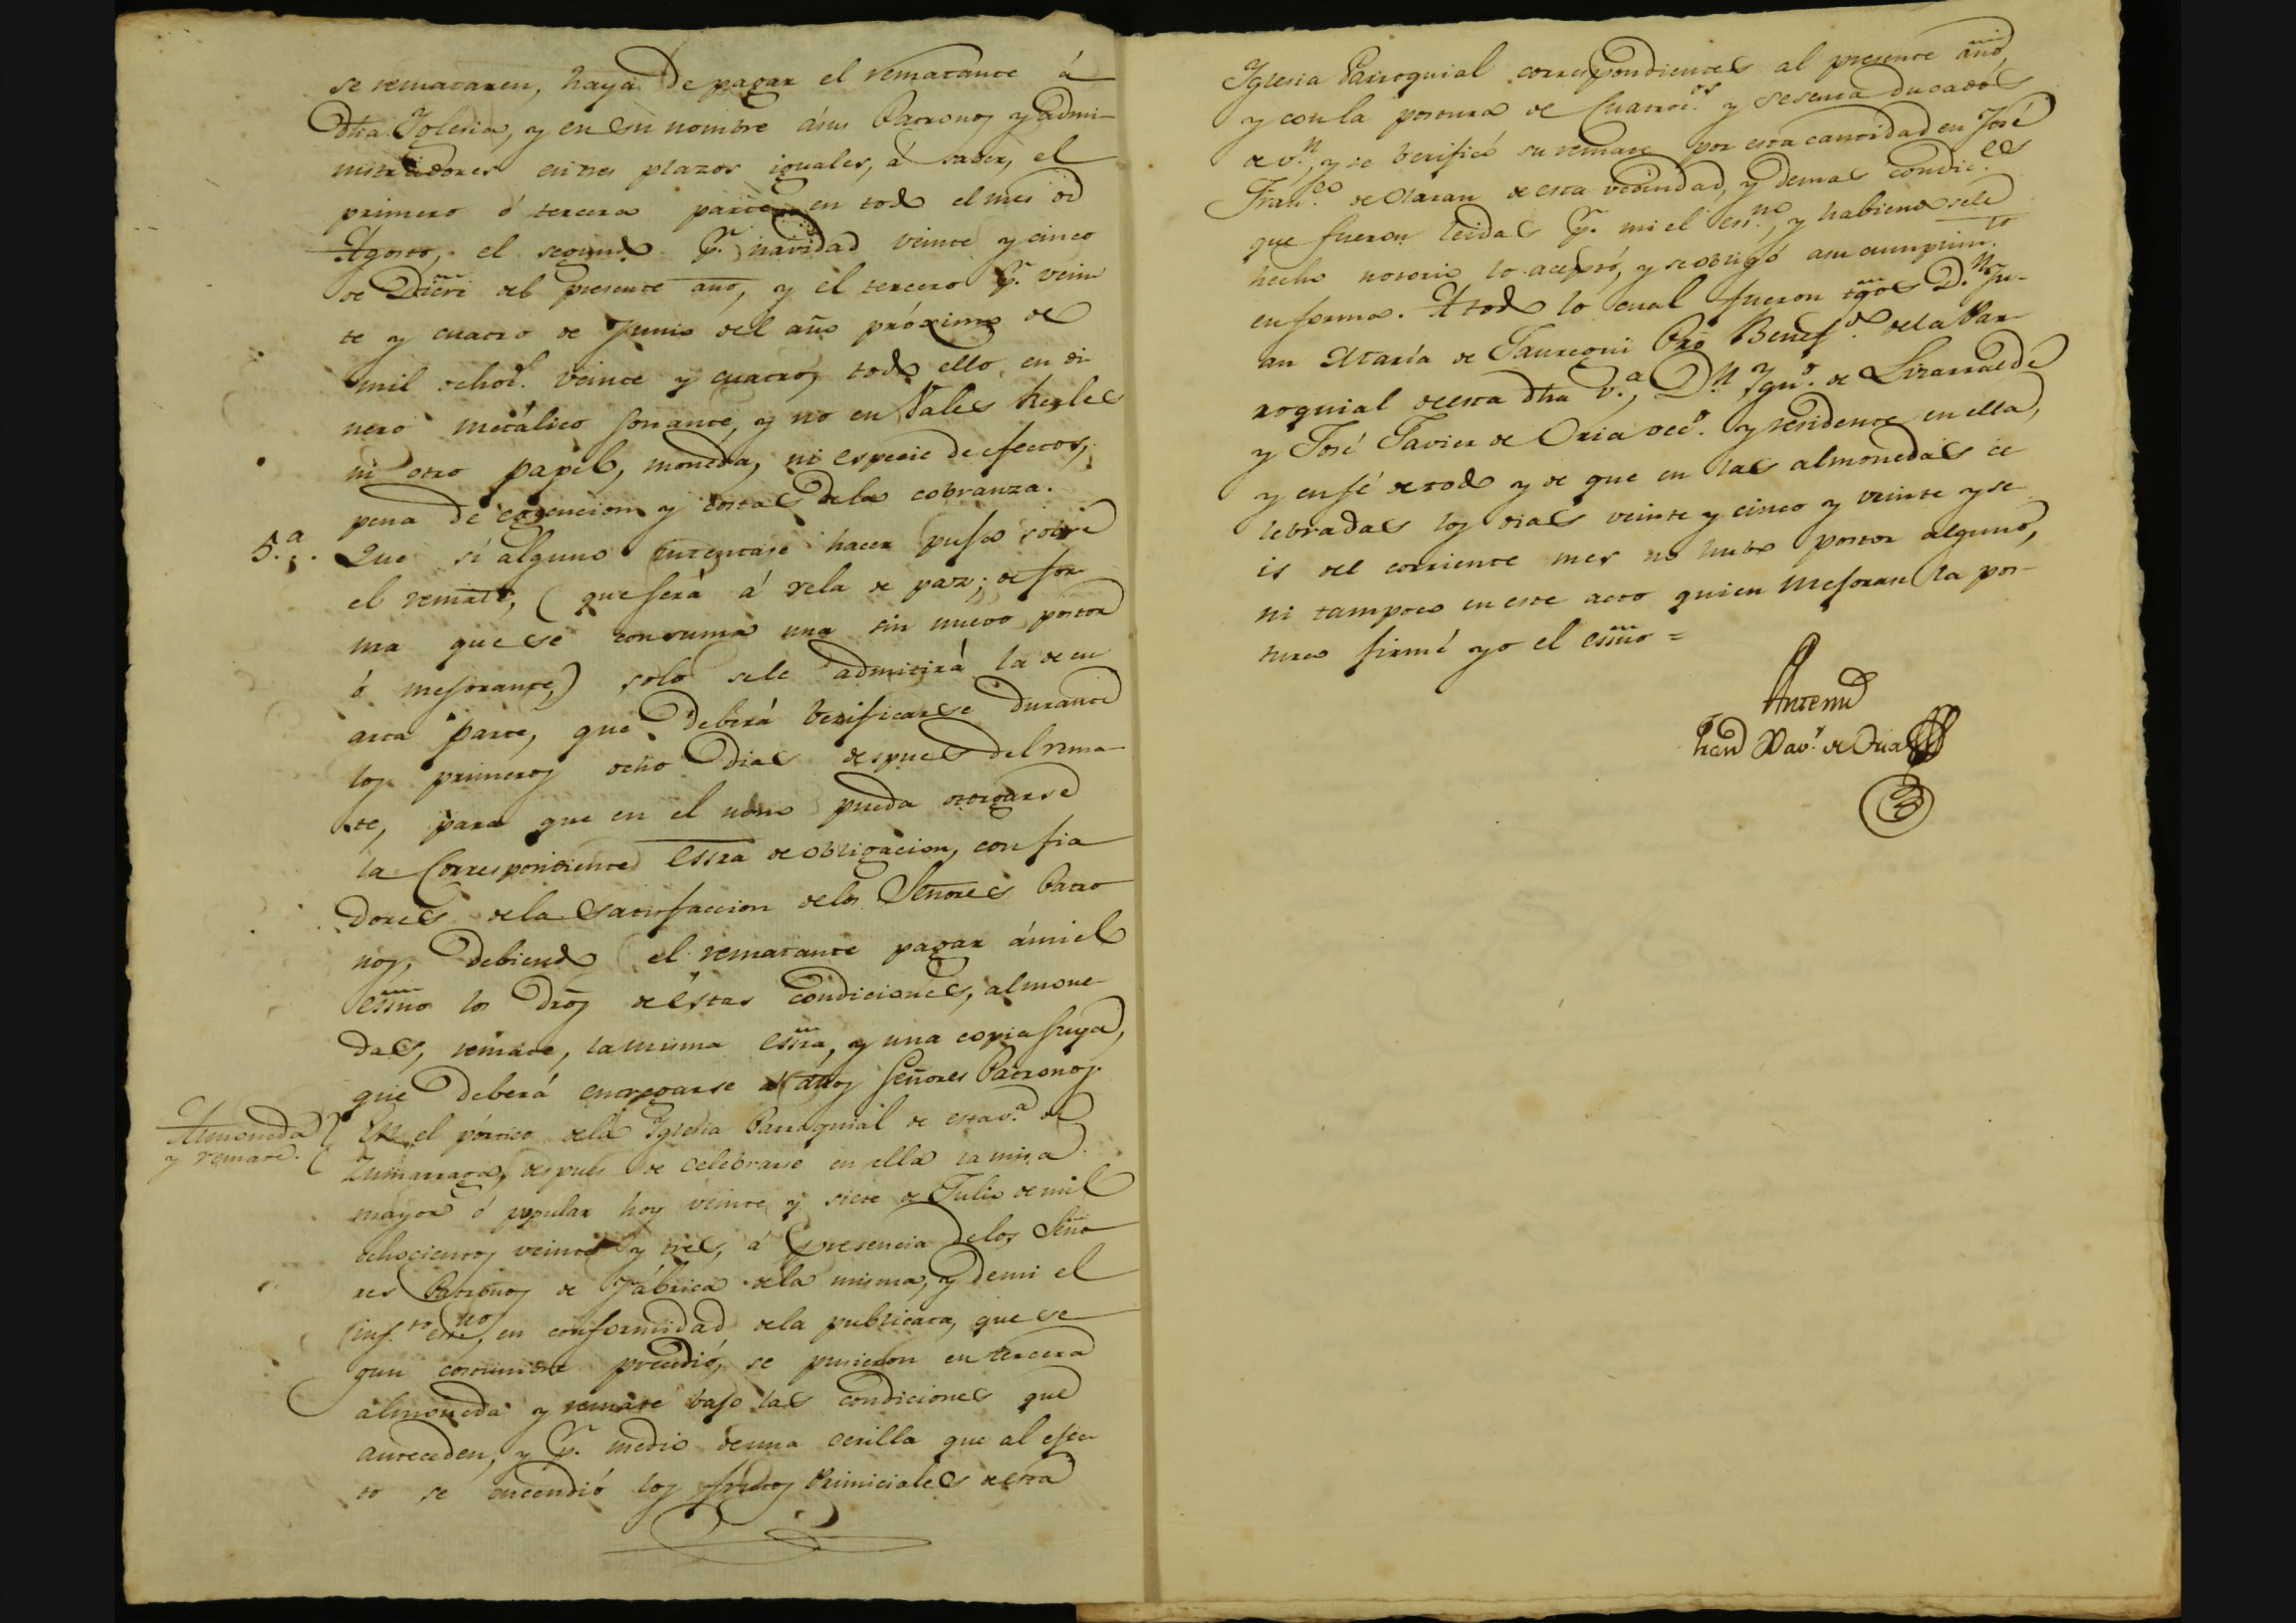 se remataren, haya de pagar el rematante á
dha Iglesia, y en su nombre á sus Patronos y Admi-
nistradores en tres plazos iguales, á saber, el
primero ó tercera parte en todo el mes de
Agosto, el segundo p.r navidad veinte y cinco
de Dicre del presente año, y el tercero p.r vein
te y cuatro de Junio del año próximo de
mil ochoc.s veinte y cuatro, todo ello en di
nero metálico sonante, y no en Vales Reales
ni otro papel, moneda, ni especie de efectos,
pena de egecucion y costas de la cobranza.
5.a Que si alguno intentase hacer puja sobre
el remate, (que será á vela de paz; de for
ma que se consuma una sin nuevo postor
ó mejorante,) solo se le admitirá la de cu
arta parte, que deberá berificarse durante
los primeros ocho dias despues del rema
te, para que en el nono pueda otorgarse
la Correspondiente Essra de obligacion, con fia
dores de la satisfaccion de los Señores Patro
nos, debiendo el rematante pagar á mi el
essno los dros de éstas condiciones, almone
das, remate, la misma essra, y una copia suya,
que deberá entregarse a dhos Señores Patronos.
Almoneda y remate.
En el pórtico de la Iglesia Parroquial de esta v.a de
Zumarraga, despues de celebrarse en ella la misa
mayor ó popular hoy veinte y siete de Julio de mil
ochocientos veinte y tres, á presencia de los Seño
res Patronos de Fábrica de la misma, y de mi el
inf.to essno, en conformidad de la publicata, que se
gun costumbre precedió, se pusieron en tercera
almoneda y remate bajo las condiciones que
anteceden, y p.r medio de una cerilla que al efec
to se encendió los frutos Primiciales de esta
Iglesia Parroquial correspondientes al presente año,
y con la postura de Cuatroc.os y sesenta ducados
de v.n, y se berificó su remate por esta cantidad en José
Fran.co de Olaran de esta vecindad, y demas condic.es
que fueron leidas p.r mi el essno, y habiendosele
hecho notorio lo aceptó, y se obligó a su cumplim.to
en forma. A todo lo cual fueron tgos D.n Ju-
an María de Jauregui Pro Benef.do de la Par
roquial de esta dha v.a, D.n Ign.o de Lizarralde
y José Javier de Oria vec.s y residente en ella,
y en fé de todo y de que en las almonedas ce
lebradas los dias veinte y cinco y veinte y se
is del corriente mes no hubo postor alguno,
ni tampoco en este acto quien mejorase la pos-
tura firmé yo el essno =
Antemi
Xav.r de Oria